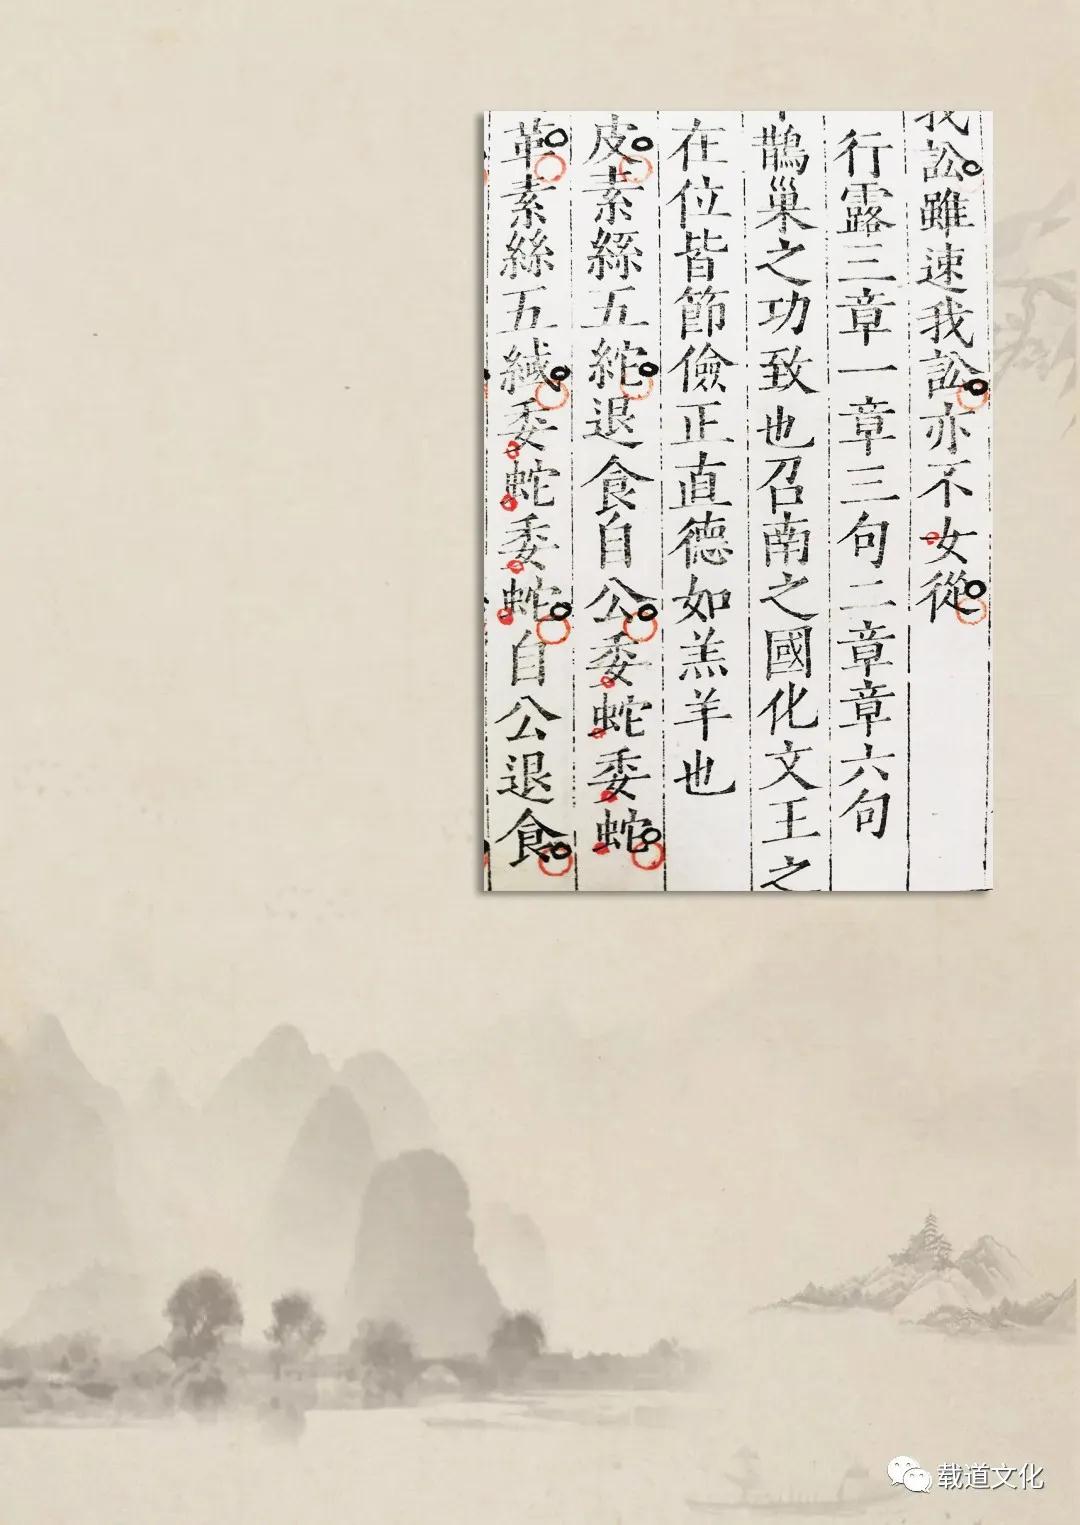 我訟雖速我訟亦不女從
行露三章一章三句二章章六句
鵲巢之功致也召南之國化文王之
在位皆節儉正直德如羔羊也
皮素絲五紽退食自公委蛇委蛇
革素絲五緎委蛇委蛇自公退食
载道文化